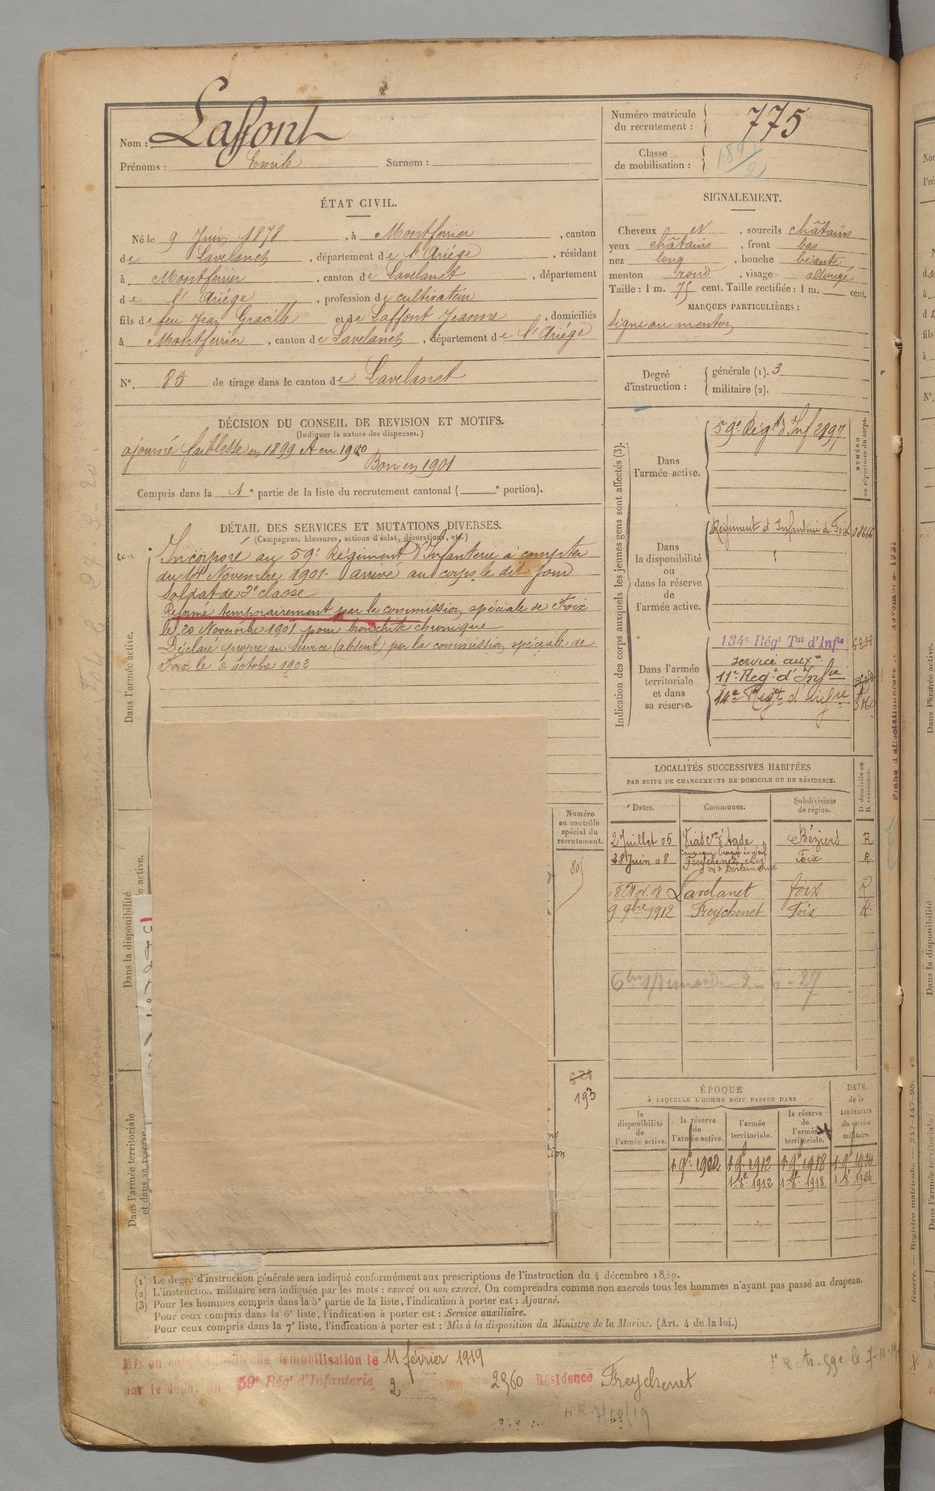 Nom : Laffont
Prénoms : Emile Surnom :
ÉTAT CIVIL.
Né le 9 Juin 1878 , à Montferrier , canton
de Lavelanet , département de l'Ariége , résidant
à Montferrier , canton de Lavelanet , département
de l'Ariége , profession de cultivateur
fils de feu Jean Gracille et de Laffont Jeanne , domiciliés
à Montferrier , canton de Lavelanet , département de l'Ariége
N° 85 de tirage dans le canton de Lavelanet
DÉCISION DU CONSEIL DE REVISION ET MOTIFS.
(Indiquer la nature des dispenses.)
ajourné faiblesse en 1899 A en 1900
Bon en 1901
Compris dans la 1e partie de la liste du recrutement cantonal ( e portion).
DÉTAIL DES SERVICES ET MUTATIONS DIVERSES.
(Campagnes, blessures, actions d'éclat, décorations, etc.)
Incorporé au 59e Régiment d'Infanterie à compter
du 14 Novembre 1901 arrivé au corps le dit jour
soldat de 2e classe
Réformé temporairement par la commission spéciale de Foix
le 20 Novembre 1901 pour bronchite chronique
Déclaré propre au service (absent) par la commission spéciale de
Foix le 2 octobre 1902
Dans l'armée active.
Dans la disponibilité
Dans l'armée territoriale
et dans sa réserve
Numéro
au contrôle
spécial du
recrutement.
805
193
Numéro matricule
du recrutement : 775
Classe
de mobilisation :
SIGNALEMENT.
Cheveux et , sourcils châtains
yeux châtains , front bas
nez long , bouche béante
menton rond , visage allongé
Taille : 1 m. 75 cent. Taille rectifiée : 1 m. cent.
MARQUES PARTICULIÈRES :
Signe au menton
Degré
d'instruction :
générale (1). 3
militaire (2).
Indication des corps auxquels les jeunes gens sont affectés (3).
NUMÉRO
au répertoire du corps.
Dans
l'armée active.
59e Régt d'Inf 2897
Dans
la disponibilité
ou
dans la réserve
de
l'armée active.
Régiment d'Infanterie de Foix
Dans l'armée
territoriale
et dans
sa réserve.
134e Régt Tal d'Infie
service auxre
11e Regt d'Infie
14e Regt d'Infie
LOCALITÉS SUCCESSIVES HABITÉES
PAR SUITE DE CHANGEMENTS DE DOMICILE OU DE RÉSIDENCE.
Dates. Communes. Subdivisions
de région. D domicile ou
R résidence.
2 Juillet 05 Vias con d'Agde Béziers R
28 Juin 08 Freychenet, chez Mr Foix R
Lavelanet foix R
9 9bre 1912 Freychenet Foix R
2 - 6 - 27
ÉPOQUE
À LAQUELLE L'HOMME DOIT PASSER DANS
DATE
de la
LIBÉRATION
du service
militaire.
la
disponibilité
de
l'armée active.
la réserve
de
l'armée active.
l'armée
territoriale.
la réserve
de
l'armée
territoriale.
1 9e 1902 1 9e 1912 1 9e 1918 1 9e 1924
1 8e 1912 1 8e 1918 1 8e 1924
(1) Le degré d'instruction générale sera indiqué conformément aux prescriptions de l'instruction du 4 décembre 1889.
(2) L'instruction militaire sera indiquée par les mots : exercé ou non exercé. On comprendra comme non exercés tous les hommes n'ayant pas passé au drapeau.
(3) Pour les hommes compris dans la 5e partie de la liste, l'indication à porter est : Ajourné.
Pour ceux compris dans la 6e liste, l'indication à porter est : Service auxiliaire.
Pour ceux compris dans la 7e liste, l'indication à porter est : Mis à la disposition du Ministre de la Marine. (Art. 4 de la loi.)
Mis en congé illimité de démobilisation le 11 février 1919
par le dépôt du 59e Régt d'Infanterie 2 2960 Résidence Freychenet